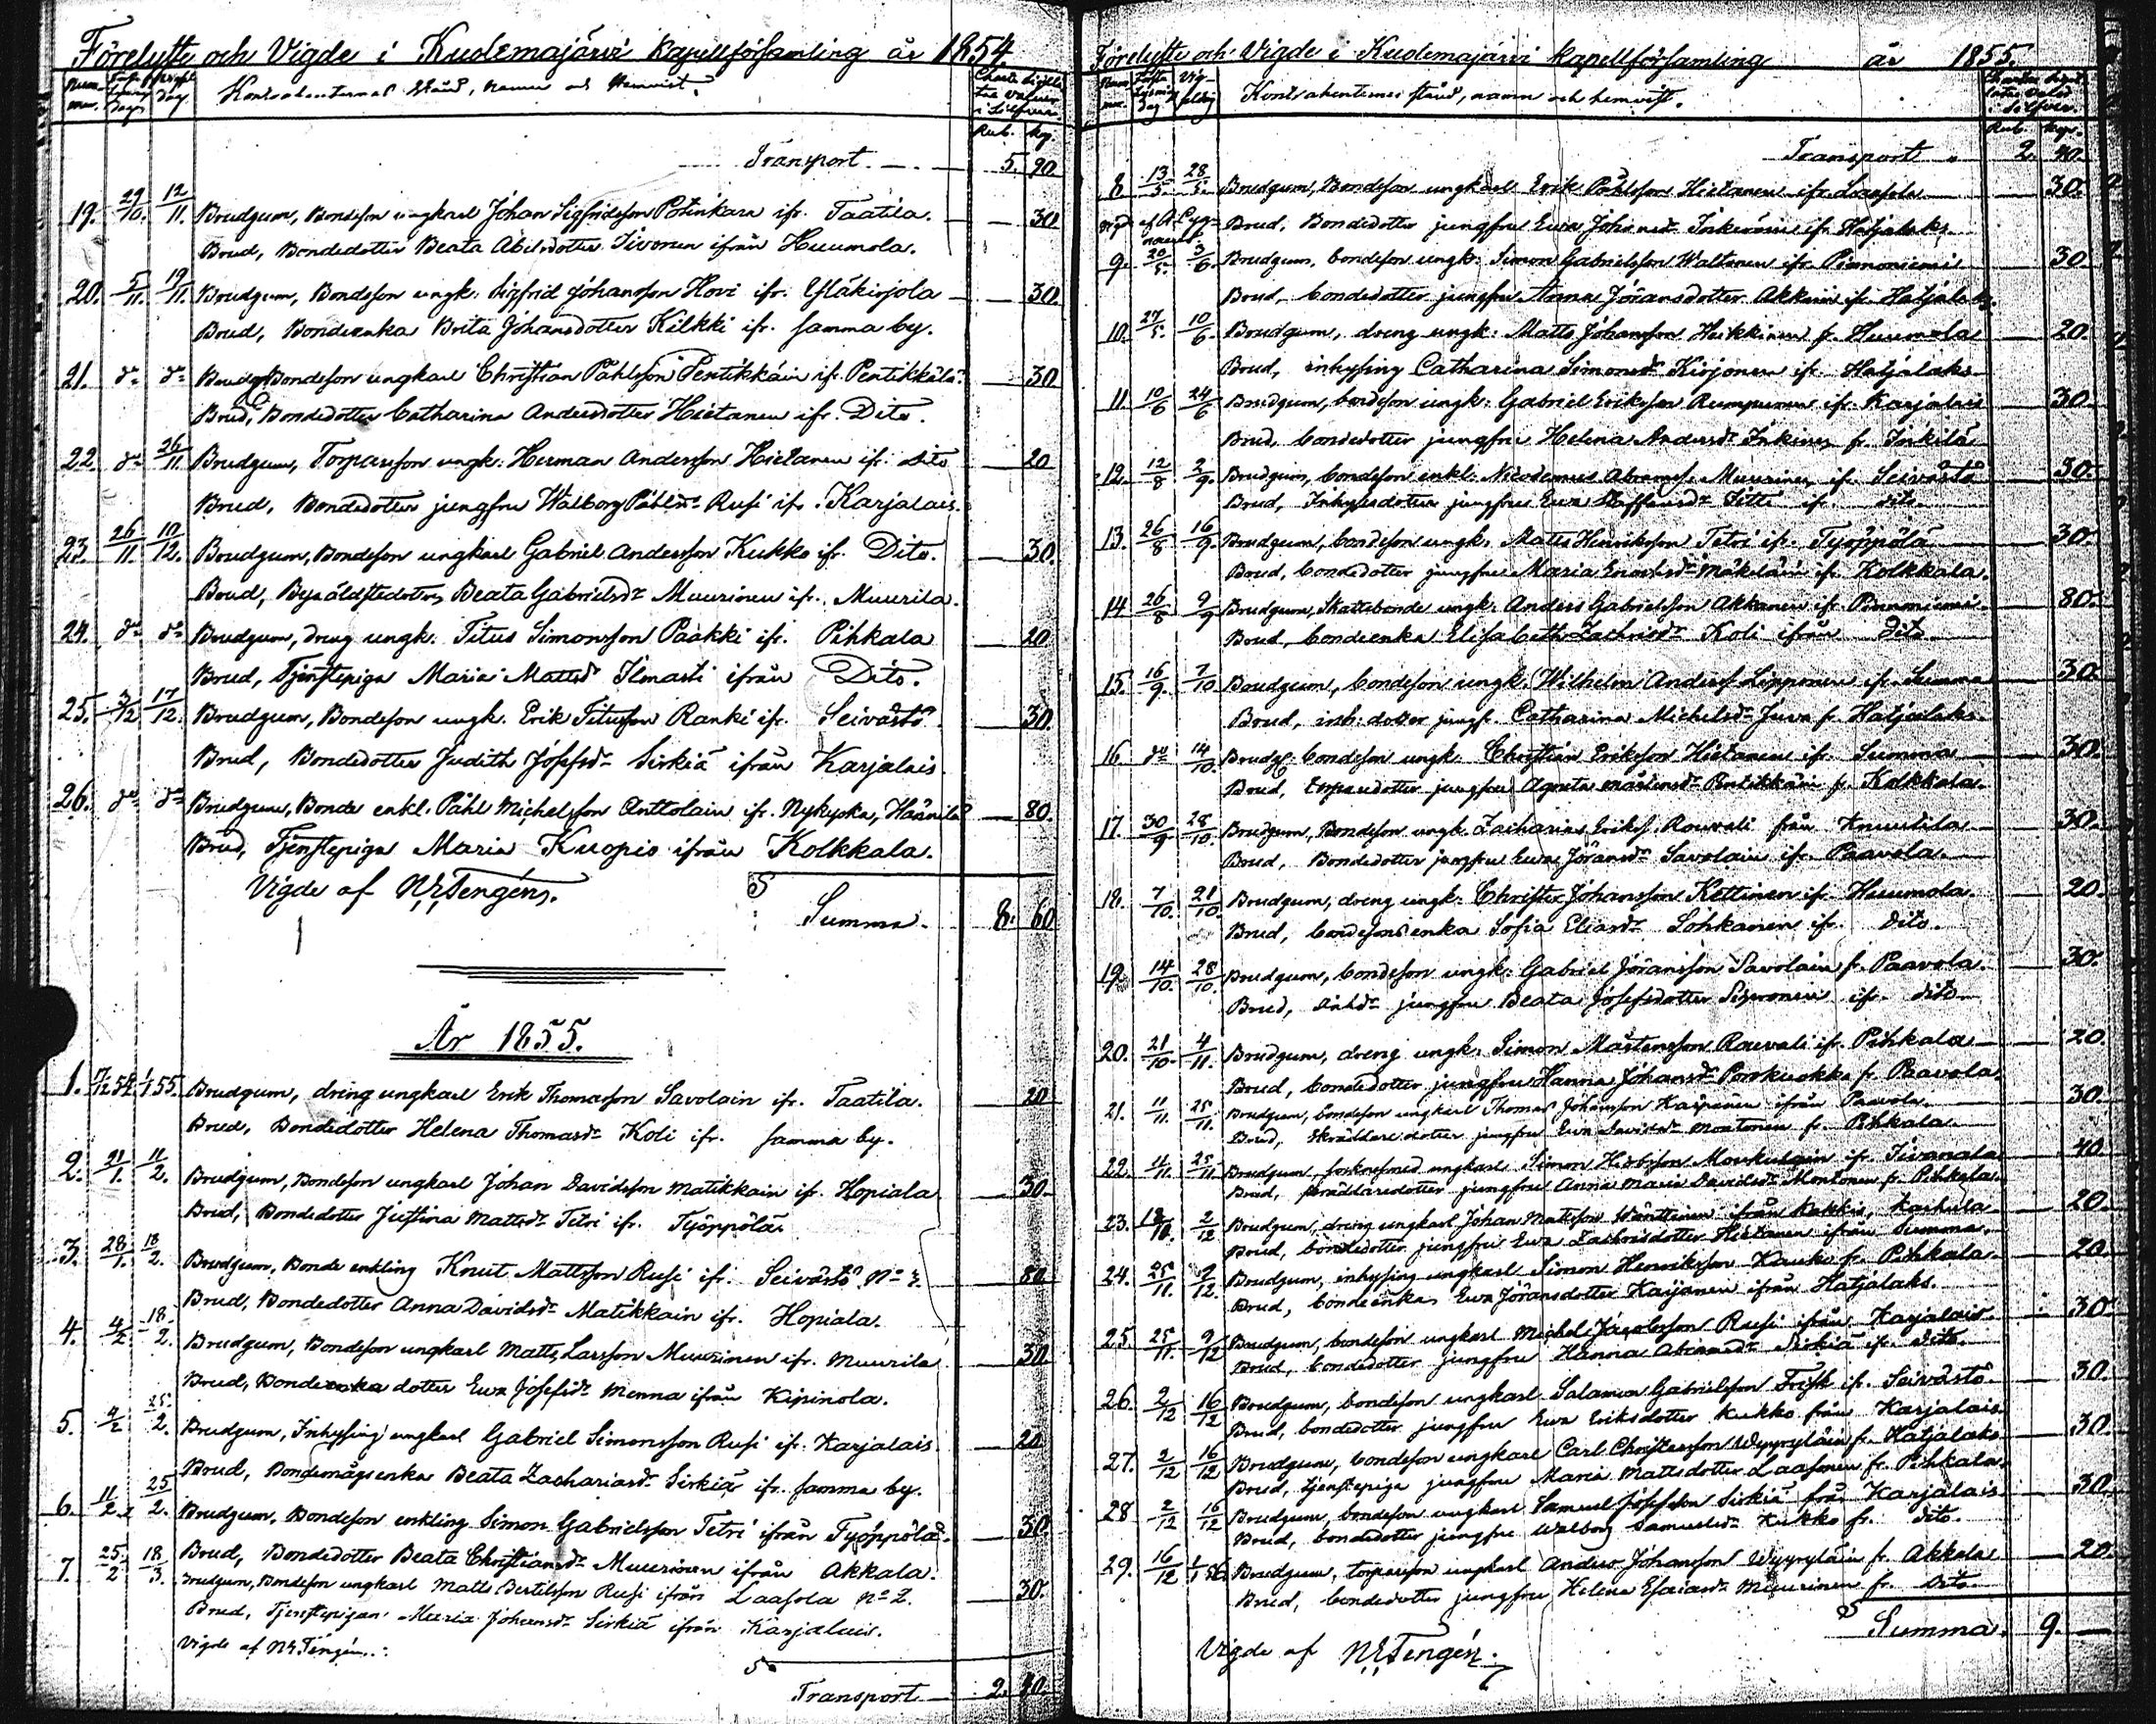 Förelyste och Vigde i Kuolemajärvi kapellförsamling år 1854.
Num-mer. Lysnings dag Vigsel dag Kontrahenternas stånd, namn och hemvist. Charta Sigillatae valeur i Silfver
Rub. kop.
Transport. 5. 90
19. 29/10. 12/11. Brudgum, Bondeson ungkarl Johan Sigfridsson Potinkara ifr. Taatila. — 30
Brud, Bondedotter Beata Abelsdotter Sivonen ifrån Huumola.
20. 5/11. 19/11. Brudgum, Bondeson ungk. Sigfrid Johansson Hovi ifr. Yläkirjola — 30
Brud, Bondeenka Brita Johansdotter Kilkki ifr. samma by.
21. do do Brudg. Bondeson ungkarl Christian Påhlsson Pentikkäin if. Pentikkälä — 30
Brud, Bondedotter Catharina Andersdotter Hietanen ifr. Dito.
22. do 26/11 Brudgum, Torpareson ungk. Herman Andersson Hietanen ifr. dito — 20
Brud, Bondedotter jungfru Walborg Påhlsdr Rusi ifr. Karjalais.
23. 26/11. 10/12. Brudgum, Bondeson ungkarl Gabriel Andersson Kukko if. Dito. — 30.
Brud, Byåldstedotter Beata Gabrielsdr Muurinen ifr. Muurila.
24. do do Brudgum, dreng ungk. Titus Simonsson Paakki ifr. Pihkala — 20
Brud, Tjenstepiga Maria Mattsd Ilmasti ifrån Dito.
25. 3/12 17/12. Brudgum, Bondeson ungk. Erik Titusson Ranki ifr. Seivästö — 30
Brud, Bondedotter Judith Josefsdr Sirkiä ifrån Karjalais
26. do do Brudgum, Bonde enkl. Påhl Michelsson Anttolain ifr. Nykyrka, — 80.
Brud, Tjenstepiga Maria Kuopio ifrån Kolkkala.
Vigde af N. E. Tengén.
Summa. 8. 60
År 1855.
1. 54 1/1 55. Brudgum, dreng ungkarl Erik Thomasson Savolain ifr. Taatila. — 20
Brud, Bondedotter Helena Thomasdr Koli ifr. samma by.
2. 21/1. 11/2. Brudgum, Bondeson ungkarl Johan Davidsson Matikkain if. Hopiala — 30
Brud, Bondedotter Justina Mattsdr Tetri ifr. Työppölä.
3. 28/1. 18/2. Brudgum, Bonde enkling Knut Mattsson Rusi ifr. Seivästö No — 80
Brud, Bondedotter Anna Davidsdr Matikkain ifr. Hopiala.
4. 4/2 18/2. Brudgum, Bondeson ungkarl Matts Larsson Muurinen ifr. Muurila — 30
Brud, Bondeenka dotter Ewa Josefsdr Menna ifrån Kipinola.
5. 4/2 25/2. Brudgum, Inhysing ungkarl Gabriel Simonsson Rusi ifr. Karjalais — 20
Brud, Bondemågsenka Beata Zachariasdr Sirkiä ifr. samma by.
6. 11/2 25/2. Brudgum, Bondeson enkling Simon Gabrielsson Tetri ifrån Työppölä — 30
Brud, Bondedotter Beata Christiansdr Muurinen ifrån Akkala.
7. 25/2 18/3. Brudgum, Bondeson ungkarl Matts Bertilsson Rusi ifrån Laasola No 2. — 30.
Brud, Tjenstepigan Maria Johansdr Sirkiä ifrån Karjalais.
Vigde af N. E. Tengén.
Transport 2. 40
Förelyste och Vigde i Kuolemajärvi kapellförsamling år 1855.
Kontrahenternas stånd, namn och hemvist.
Rub. kop.
Transport 2. 40.
8 13/5. 28/5. Brudgum, Bondeson ungkarl Erik Påhlsson Hietanen ifr. — 30.
Brud, Bondedotter jungfru Ewa Johansdr Inkeroinen if. Hatjalaks
9. 20/5. 3/6. Brudgum, bondeson ungk. Simon Gabrielsson Waltonen ifr. Pinnoniemi — 30
Brud, bondedotter jungfru Anna Jöransdotter Akkain if. Hatjalaks.
10. 27/5. 10/6. Brudgum, dreng ungk. Matts Johansson Heikkinen fr. Huumola — 20.
Brud, inhysing Catharina Simonsdr Kirjonen ifr. Hatjalaks
11 10/6 24/6 Brudgum, bondeson ungk. Gabriel Eriksson Rumpunen ifr. Karjalais — 30.
Brud, bondedotter jungfru Helena Andersdr Inkinen fr. Inkilä
12. 12/8 2/9. Brudgum, bondeson enkl. Nicodemus Abramss. Muurinen if. Seivästö — 30.
Brud, Inhysesdotter jungfru Ewa Staffansdr Tetti if. dito.
13. 26/8 16/9. Brudgum, bondeson ungk. Matts Henriksson Tetri if. Työppölä — 30.
Brud, bondedotter jungfru Maria Mäkeläin if. Kolkkala.
14 26/8 9/9 Brudgum, Skattebonde ungk. Anders Gabrielsson Akkanen if. Pinnoniemi — 80.
Brud, bondeenka Elisabeth Zachrisdr Koli ifrån dito
15. 16/9. 7/10 Brudgum, bondeson ungk. Wilhelm Anderss Lipponen ifr. Summa — 30.
Brud, inh. dotter jungf. Catharina Michelsdr Juva fr. Hatjalaks.
16. do 14/10. Brudg. bondeson ungk. Christian Eriksson Hietanen if. Summa — 30.
Brud, torparedotter jungfru Agneta Mårtensdr Pentikkäin fr. Kolkkala.
17. 30/9 28/10. Brudgum, Bondeson ungk. Zacharias Erikss. Rouvali från Knuutila — 30.
Brud, Bondedotter jungfru Ewa Jöransdr Savolain if. Paavola.
18. 7/10. 21/10. Brudgum, dreng ungk. Christer Johansson Kettinen if. Huumola — 20.
Brud, bondesons enka Sofia Eliasdr Lohkanen ifr. dito.
19. 14/10. 28/10. Brudgum, bondeson ungk. Gabriel Jöransson Savolain fr. Paavola. — 30.
Brud, jungfru Beata Josefsdotter ifr. dito
20. 21/10. 4/11. Brudgum, dreng ungk. Simon Mårtensson Rouvali if. Pihkala — 20.
Brud, bondedotter jungfru Hanna Johansdr Porokuokka fr. Paavola.
21. 11/11. 25/11. Brudgum, bondeson ungkarl Thomas Johansson ifrån Paavola. — 30.
Brud, Skräddaredotter jungfru Ewa Davidsdr Montonen fr. Pihkala.
22. 11/11. 25/11. Brudgum, ungkarl Simon ifr. — 40.
Brud, skräddaredotter jungfru Anna Maria Davidsdr Montonen fr. Pihkala.
23. 2/12 Brudgum, dreng ungkarl Johan Mattsson Wänttinen ifrån Kakkis, — 20.
Brud, bondedotter jungfru Ewa Zachrisdotter Hietanen ifrån Summa.
24. 25/11. 9/12. Brudgum, inhysing ungkarl Simon Henriksson Kauko fr. Pihkala — 20.
Brud, bondeenka Ewa Jöransdotter Kaijanen ifrån Hatjalaks.
25. 25/11. 9/12 Brudgum, bondeson ungkarl Michel Jacobsson Rusi ifrån Karjalais — 30.
Brud, bondedotter jungfru Hanna Sirkiä if. dito.
26. 2/12 16/12 Brudgum, bondeson ungkarl Salamon Gabrielsson Frisk if. Seivästö — 30.
Brud, bondedotter jungfru Ewa Eriksdotter Kukko från Karjalais
27. 2/12 16/12 Brudgum, bondeson ungkarl Carl Christersson Wyyryläin fr. Hatjalaks — 30.
Brud, tjenstepiga jungfru Maria Mattsdotter Laasonen fr. Pihkala.
28 2/12 16/12 Brudgum, bondeson ungkarl Samuel Josefsson Sirkiä från Karjalais — 30.
Brud, bondedotter jungfru Walborg Samuelsdr Kukko fr. dito.
29. 16/12 1/1 56. Brudgum, torpareson ungkarl Anders Johansson Wyyryläin fr. Akkala — 20.
Brud, bondedotter jungfru Helena Esaiasdr Muurinen fr. Dito.
Summa. 9. —
Vigde af N. E. Tengén.